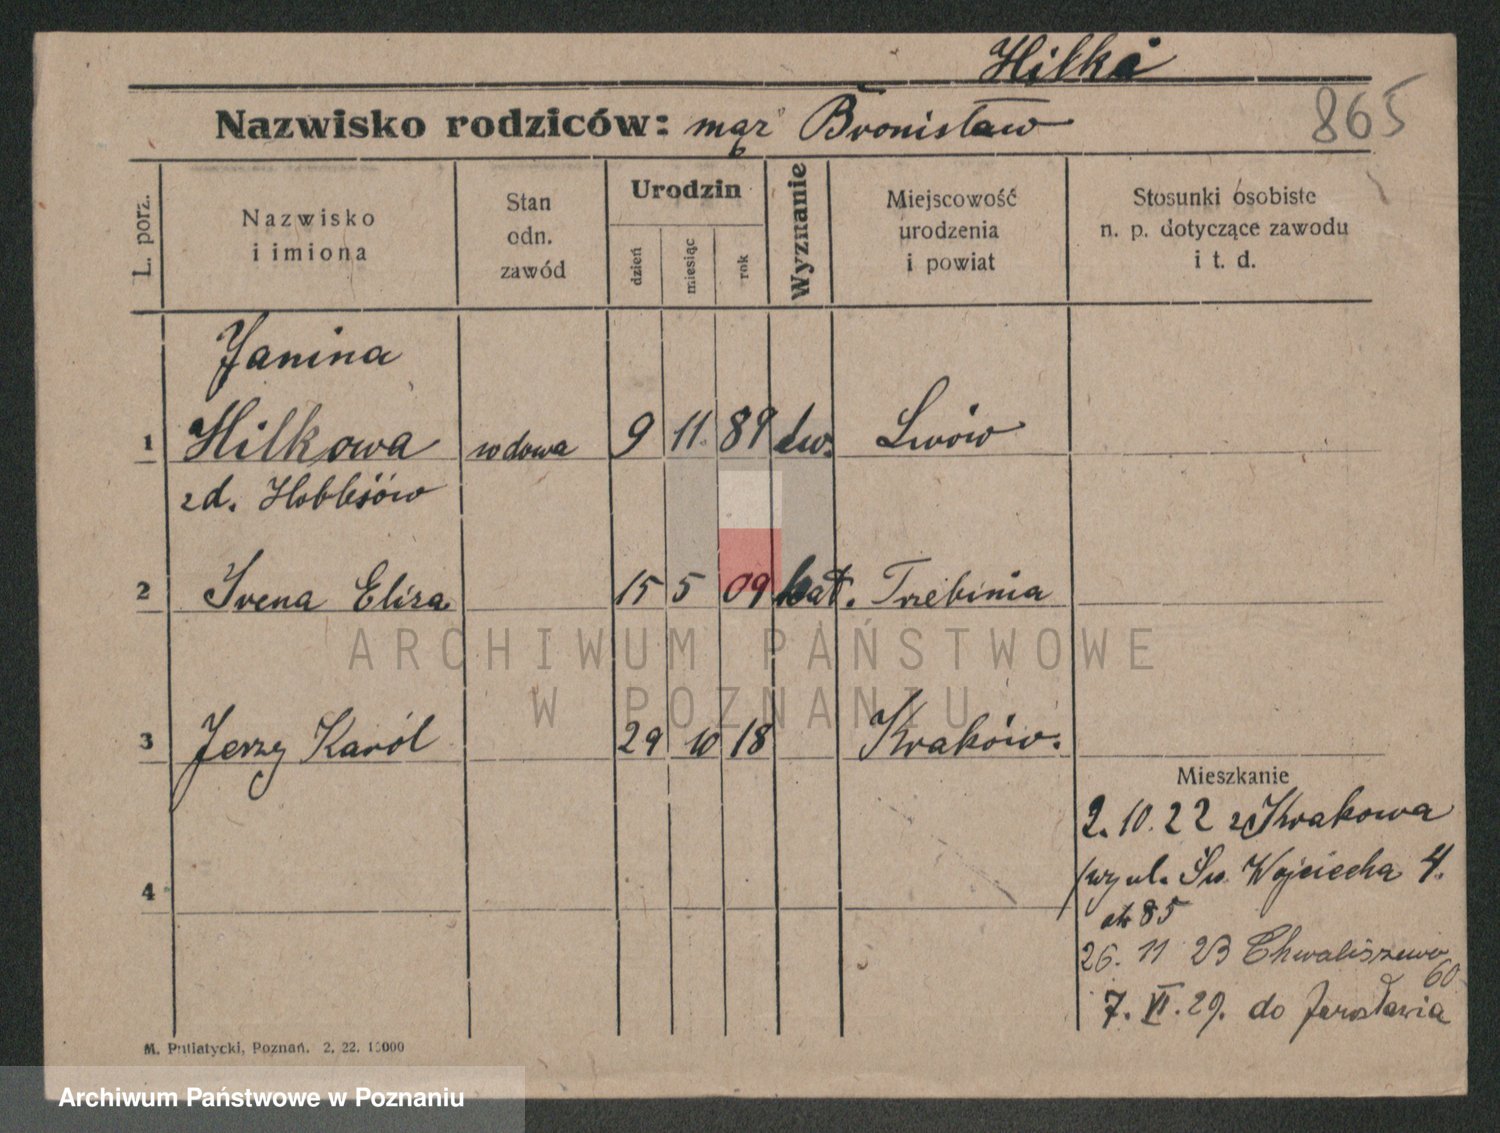 Hilka
Nazwisko rodziców: mąż Bronisław
865
L. porz.
Nazwisko
i imiona
Stan
odn.
zawód
Urodzin
dzień
miesiąc
rok
Wyznanie
Miejscowość
urodzenia
i powiat
Stosunki osobiste
n. p. dotyczące zawodu
i t. d.
Janina
1 Hilkowa wdowa 9 11. 89 Lwów
zd.
2 Irena Eliza 15 5 09 kat. Trzebinia
3 Jerzy Karól 29 10 18 Kraków.
Mieszkanie
2. 10. 22 z Krakowa
ul. Św. Wojciecha 4.
85
4
26. 11 23 Chwaliszewo
60
7. VI. 29. do Jarosławia
M. Putiatycki, Poznań. 2. 22. 10000
ARCHIWUM PAŃSTWOWE
W POZNANIU
Archiwum Państwowe w Poznaniu